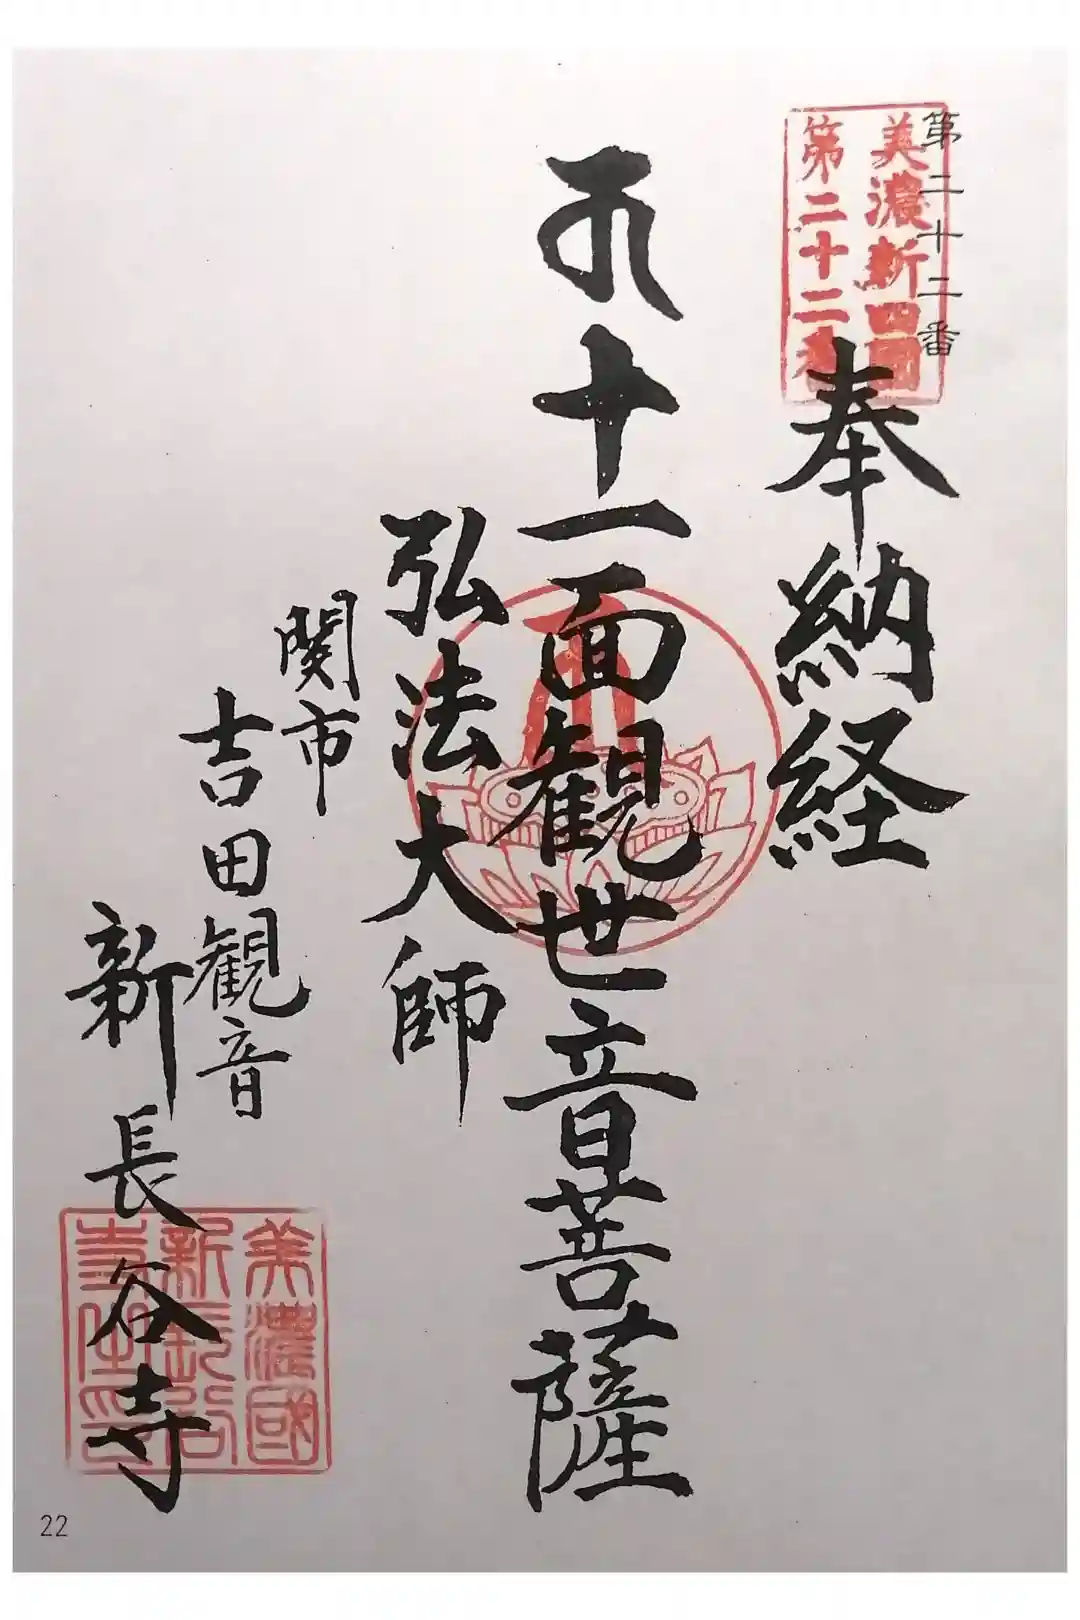 第二十二番
美濃新四國
第二十二番
奉納経
十一面観世音菩薩
弘法大師
関市
吉田観音
新長谷寺
美濃國
新長谷
寺印
22